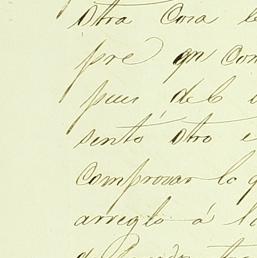 otra cosa
pre qn con
pues debo
sentó otro
comprovar lo q
arreglo á l